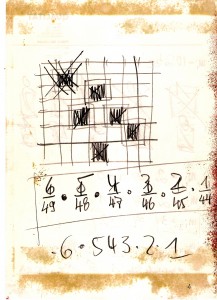 6/49 · 5/48 · 4/47 · 3/46 · 2/45 · 1/44
· 6 · 5 4 3 · 2 · 1